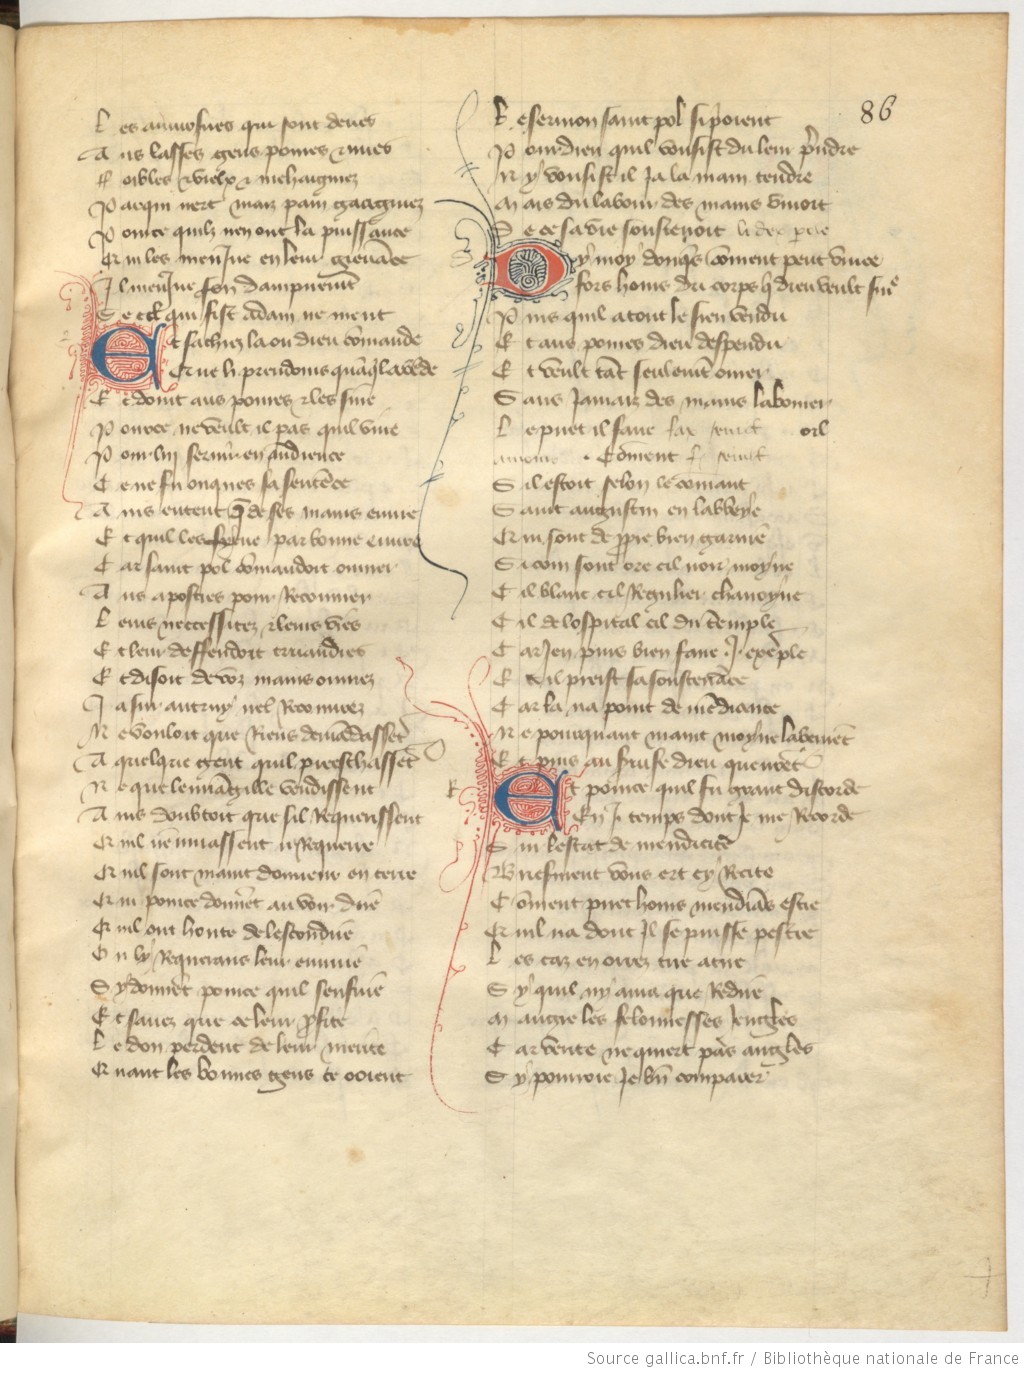 L es aumosnes qui sont deues
A us lasses gens poures & nues
F oibles & vielx & mehaignez
P ar qui nert maiz pain gaaigniez
P our ce quilz nen ont la puissance
Qui les meniue en leur greuāce
Il meniue son dampnemēt
Se cil qui fist Adam ne ment
Et sachiez la ou dieu cōmande
Que li preudoms quāql a vēde
E t doint aus poures & les siue
P our ce ne veult il pas quil viue
P our lui seruir en audience
C e ne fu onques sa sentēce
A ins entent q de ses mains euure
E t quil les par bonne euure
C ar saint pol cōmandoit ouurer
A us apostres pour Recouurer
L eurs neccessitez & leurs vies
E t leur deffendoit truandies
E t disoit de voz mains ouurez
J a sur autruy nel Recouurez
N e vouloit que Riens demādassēt
A quelque gent quil preeschassēt
N e que leuuāgille vendissent
A ins doubtoit que sil Requeissent
Quil ne en Requerre
Quil sont maint donneur en terre
Qui pource donnēt au voir dire
Quil ont honte de lescondire
O u ly Requerans leur ennuie
S y donnēt pource quil senfuie
E t sauez que ce leur profite
L e don perdent de leur merite
Quant les bonnes gens ce ooient
L e sermon saint pol si prioient
P our dieu quil vousist du leur prendre
N y vousist il Ja la main tendre
M ais du labour des mains viuoit
D e ce sa vie soustenoit
Dy moy donqs cōment peut viure
fors homs du corps q dieu veult suiure
P uis quil a tout le sien vendu
E t aus poures dieu despendu
E t veult tāt seulemēt ourer
S ans Jamaiz des mains labourer
L e puet il faire
Cōment
S il estoit selon le cōmant
S aint augustin en labbeye
Qui sont de ppre bien garnie
S i com sont ore cil noir moyne
C il blanc cil Regulier chanoyne
C il de lospital cil du temple
C ar Jen puis bien faire .I. exēple
E t il preist sa soustenāce
C ar la na point de mēdiance
N e pourquant maint moyne labeurēt
E t puis au seruise dieu queurēt
Et pource quil fu grant discorde
En .I. temps dont Je me Recorde
S ur lestat de mendicité
Briefment vous ert cy Recite
C ōment puet homs mendiās estre
Quil na dont Il se puisse pestre
L es caz en orrez tire a tire
S y quil ny aura que Redire
M augre les felonnesses Jengles
C ar verite ne quiert pas angles
S y pourroie Je bn comparer
86
Source gallica.bnf.fr / Bibliothèque nationale de France